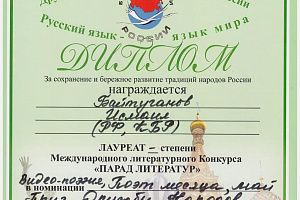 Русский язык - язык мира
РОССИИ
ДИПЛОМ
За сохранение и бережное развитие традиций народов России
награждается
Байтуганов
Исмаил
(РФ, КБР)
ЛАУРЕАТ – степени
Международного литературного Конкурса
«ПАРАД ЛИТЕРАТУР»
Видео-поэзия, Поэт месяца, май
в номинации
Дружбы Народов